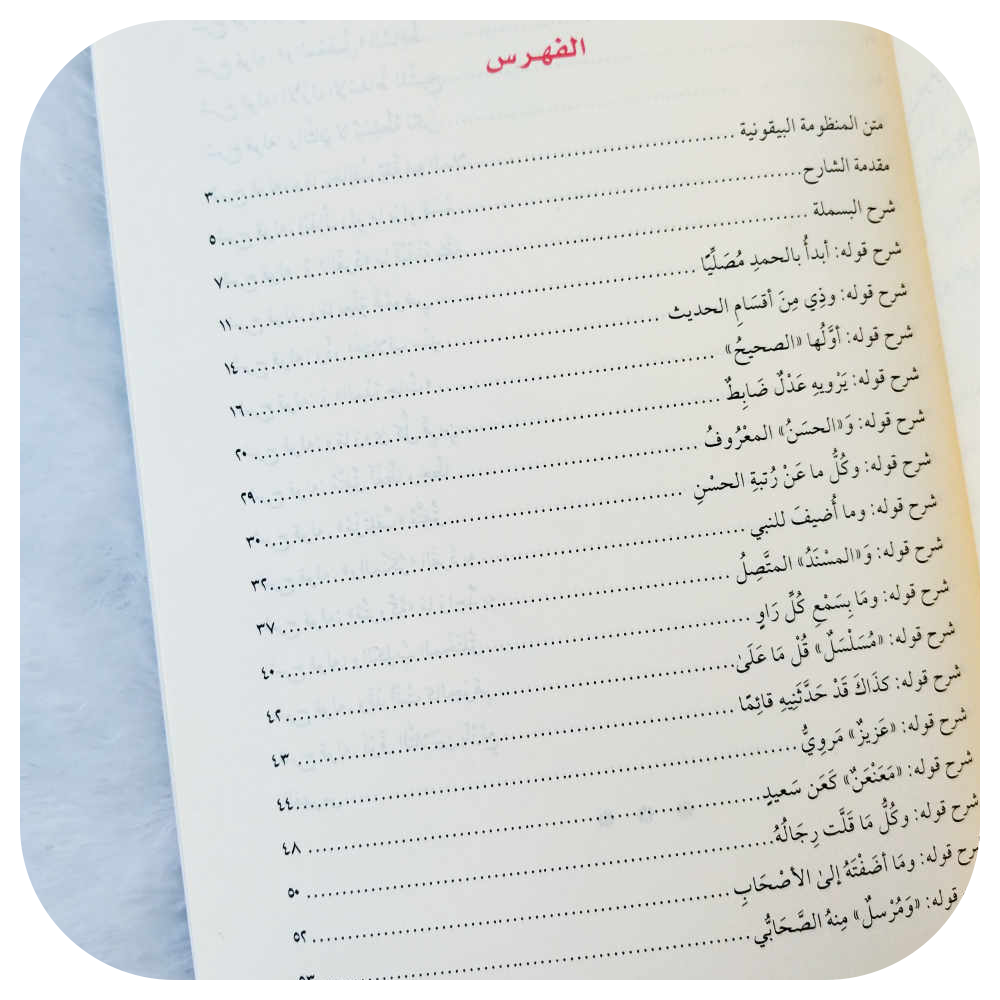 الفهرس
متن المنظومة البيقونية ................ ٣
مقدمة الشارح ................ ٥
شرح البسملة ................ ٧
شرح قوله: أبدأُ بالحمدِ مُصَلِّيًا ................ ١١
شرح قوله: وذِي مِنَ أقسَامِ الحديث ................ ١٤
شرح قوله: أوَّلُها «الصحيحُ» ................ ١٦
شرح قوله: يَرْويهِ عَدْلٌ ضَابِطٌ ................ ٢٠
شرح قوله: وَ«الحسَنُ» المعْرُوفُ ................ ٢٩
شرح قوله: وكُلُّ ما عَنْ رُتبةِ الحسْنِ ................ ٣٠
شرح قوله: وما أُضيفَ للنبي ................ ٣٢
شرح قوله: وَ«المسْنَدُ» المتَّصِلُ ................ ٣٧
شرح قوله: ومَا بِسَمْعِ كُلِّ رَاوٍ ................ ٤٠
شرح قوله: «مُسَلْسَلٌ» قُلْ مَا عَلَىٰ ................ ٤٢
شرح قوله: كذَاكَ قَدْ حَدَّثَنِيهِ قائِمًا ................ ٤٣
شرح قوله: «عَزيزٌ» مَروِيُّ ................ ٤٤
شرح قوله: «مَعَنْعَنٌ» كَعَن سَعيدٍ ................ ٤٨
شرح قوله: وكُلُّ مَا قَلَّت رِجَالُهُ ................ ٥٠
شرح قوله: ومَا أضَفْتَهُ إلىٰ الأصْحَابِ ................ ٥٢
قوله: «وَمُرْسلٌ» مِنهُ الصَّحَابُّي ................ ٥٣